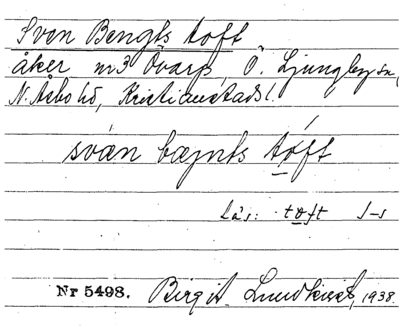 Sven Bengts toft
åker nr 3 Övarp, Ö. Ljungby sn,
N. Åsbo hd, Kristianstads l.
svæn bæŋts tɷft
Läs: tɷft s-s
Nr 5498. Birgit Lundkvist, 1938.